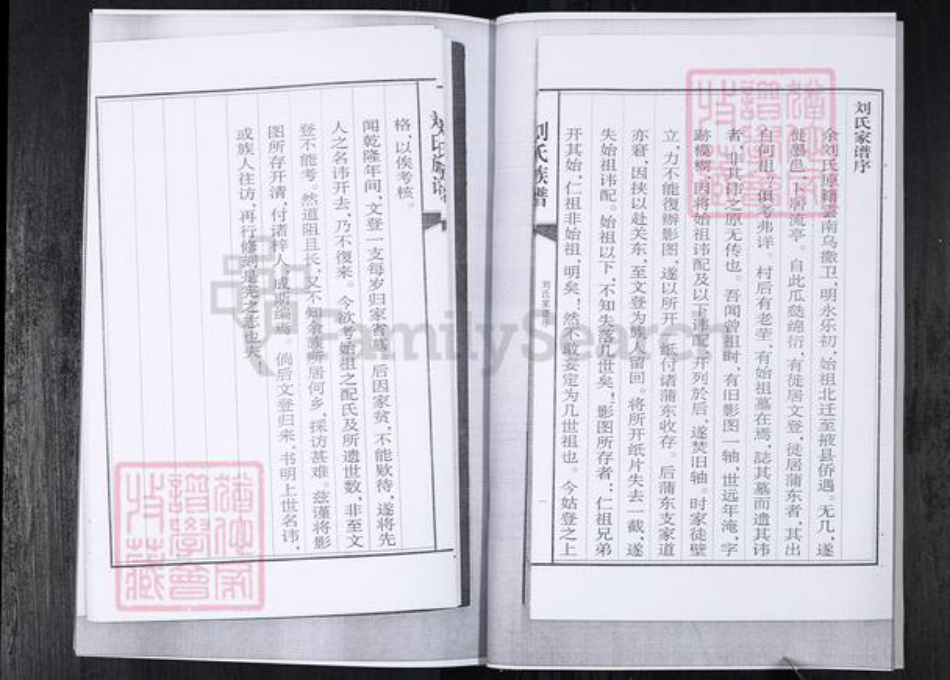 刘氏家谱序
余刘氏原籍雲南乌撒卫，明永乐初，始祖北迁至掖县侨遇。无几，遂
徙墨邑，卜居流亭。自此瓜瓞绵衍，有徙居文登，徙居蒲东者，其出
自何祖，俱考弗详。村后有老茔，有始祖墓在焉，誌其墓而遗其讳
者，非其讳之原无传也。吾闻曾祖时，有旧影图一轴，世远年淹，字
跡模糊，因将始祖讳配及以下讳配，开列於后，遂焚旧轴。时家徒壁
立，力不能復辦影图，遂以所开一纸付诸蒲东收存。后蒲东支家道
亦窘，因挟以赴关东，至文登为族人留回。将所开纸片失去一截，遂
失始祖讳配。始祖以下，不知失落几世矣！影图所存者，仁祖兄弟
开其始，仁祖非始祖，明矣！然不敢妄定为几世祖也。今姑登之上
刘氏族谱
刘氏家谱序
一
格，以俟考核。
闻乾隆年间，文登一支每岁归家省墓，后因家贫，不能欵待，遂将先
人之名讳开去，乃不復来。今欲考始祖之配氏及所遗世数，非至文
登不能考。然道阻且长，又不知余族所居何乡，採访甚难。兹谨将影
图所存开清，付诸梓人，成斯编焉。倘后文登归来，书明上世名讳，
或族人往访，再行修谱，是先之志也夫！
FamilySearch